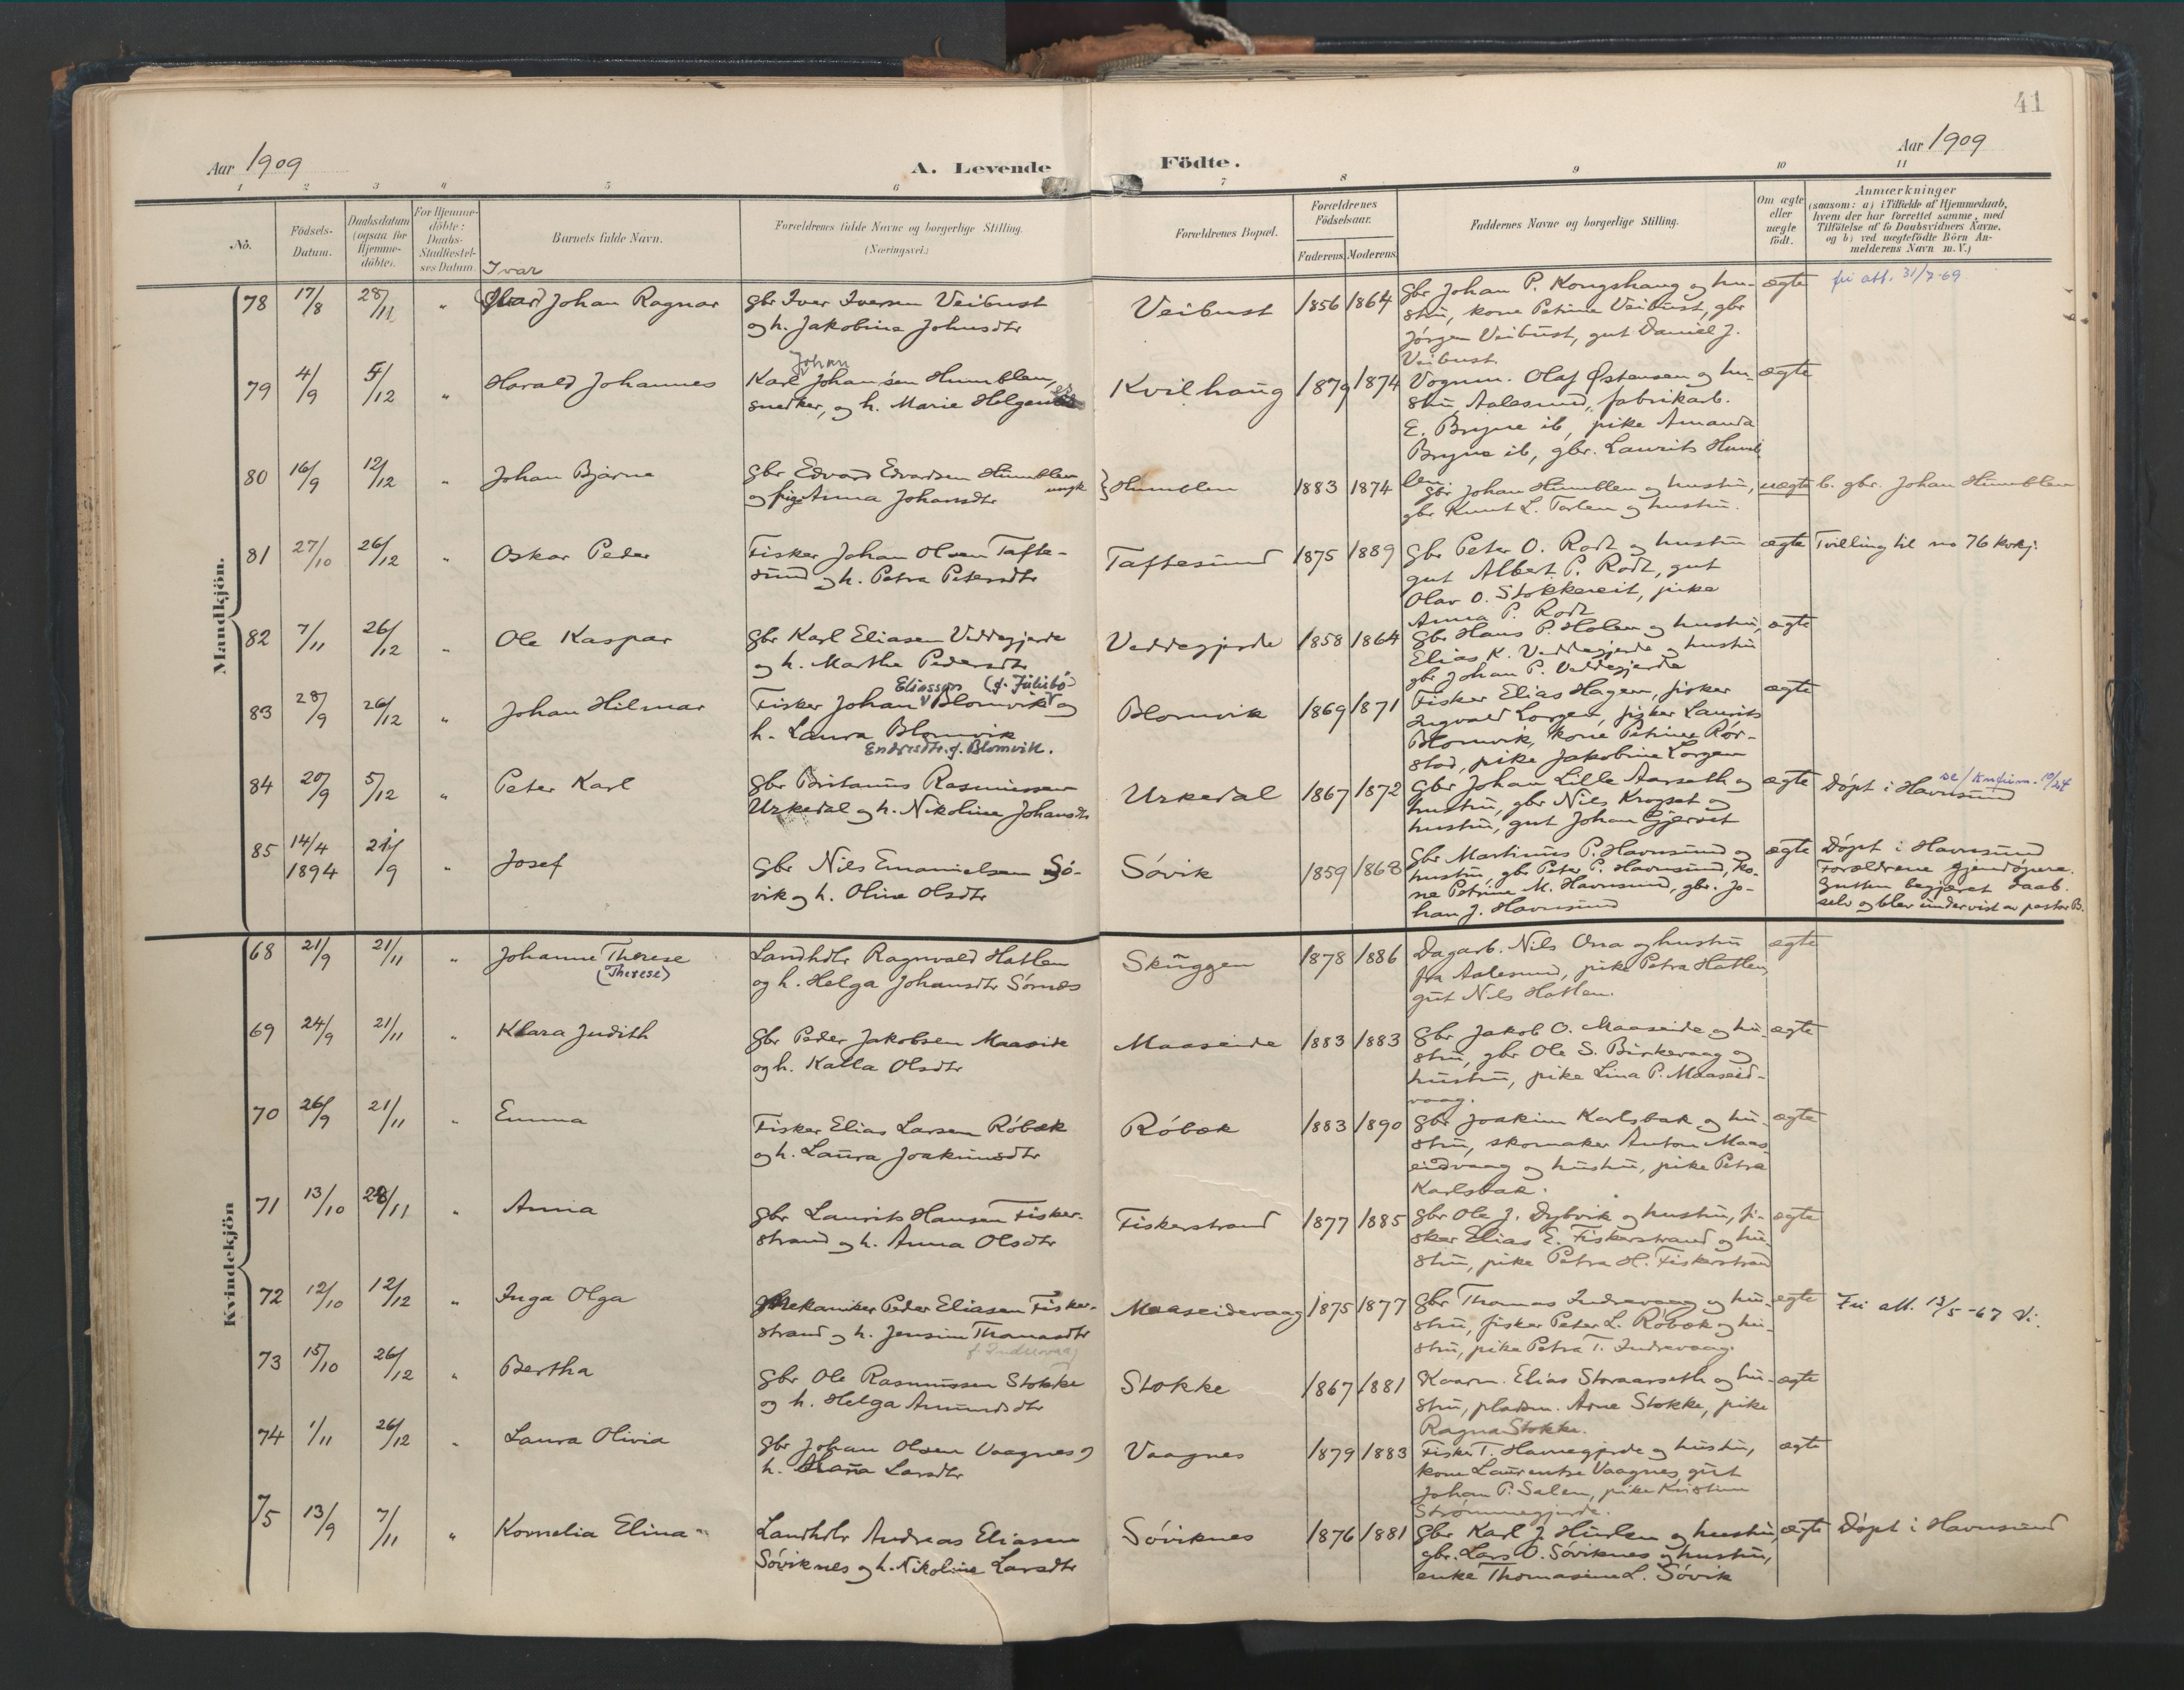 41
Aar 1909
A. Levende Födte.
Aar 1909
1 2 3 4 5 6 7 8 9 10 11
No.
Födsels-
Datum.
Daabsdatum
(ogsaa for
Hjemme-
döbte).
For Hjemme-
döbte:
Daabs-
Stadfæstel-
ses Datum.
Barnets fulde Navn.
Forældrenes fulde Navne og borgerlige Stilling.
(Næringsvei.)
Forældrenes Bopæl.
Forældrenes
Födselsaar.
Faderens. Moderens.
Faddernes Navne og borgerlige Stilling.
Om ægte
eller
uægte
födt.
Anmærkninger
(saasom: a) i Tilfælde af Hjemmedaab,
hvem der har forrettet samme, med
Tilföielse af to Daabsvidners Navne,
og b) ved uægtefödte Börn An-
melderens Navn m. V.)
Mandkjön.
Ivar
78 17/8 28/11 " Johan Ragnar
gbr Iver Iversen Veibust
og h. Jakobina Johnsdtr
Veibust 1856 1864
gbr Johan P. Kongshaug og hu-
stru, kone Petrine Veibust, gbr
Jörgen Veibust, gut Daniel J.
Veibust
ægte
fri att. 31/7-69
79 4/9 5/12 " Harald Johannes
Johan
Karl Johansen Humblen,
snedker, og h. Marie Helgen
Kvilhaug 1879 1874
Vognm. Olaf Østensen og hu-
stru Aalesund, fabrikarb.
E. Bryne ib, pike Amanda
Bryne ib, gbr. Laurits Humb
len.
ægte
80 16/9 12/12 " Johan Bjarne
gbr Edvard Edvardsen Humblen
ungk
og pige Anna Johansdtr
Humblen 1883 1874
gbr Johan Humblen og hustru,
gbr Knut L. Tarlen og hustru.
uægte
b. gbr. Johan Humblen
81 27/10 26/12 " Oskar Peder
Fisker Johan Olsen Tafte-
sund og h. Petra Petersdtr
Taftesund 1875 1889
gbr Peter O. Rodt og hustru
gut Albert P. Rodt, gut
Olav O. Stokkereit, pike
Anna P. Rodt
ægte
Tvilling til no 76 kvkj.
82 7/11 26/12 " Ole Kaspar
gbr Karl Eliasen Veddegjerde
og h. Marthe Pedersdtr
Veddegjerde 1858 1864
gbr Hans P. Holen og hustru,
Elias K. Veddegjerde og hustru
gbr Johan P. Veddegjerde
ægte
83 28/9 26/12 " Johan Hilmar
Eliassen (f. Julibö)
Fisker Johan Blomvik og
h. Laura Blomvik
Endresdtr. f. Blomvik.
Blomvik 1869 1871
Fisker Elias Hagen, fisker
Ingvald Lorgen, fisker Laurits
Blomvik, kone Petrine Rör-
stad, pike Jakobine Lorgen
ægte
84 20/9 5/12 " Peter Karl
gbr Britanus Rasmussen
Urkedal og h. Nikoline Johansdtr
Urkedal 1867 1872
gbr Johan Lille Aarseth og
hustru, gbr Nils Krogset og
hustru, gut Johan Gjerset
ægte
Döpt i Havnsund
se/ Konfirm. 10/24
85 14/4 1894 21/9 " Josef
gbr Nils Emanielsen Sö-
vik og h. Oline Olsdtr
Sövik 1859 1863
gbr Martinus P. Havnsund og
hustru, gbr Peter P. Havnsund, ko-
ne Petrine M. Havnsund, gbr. Jo-
han J. Havnsund
ægte
Döpt i Havnsund
Forældrene gjendöpere.
Gutten begjæret daab
selv og blev undervist av pastor B.
Kvindekjön
68 21/9 21/11 " Johanne Therese
(Therese)
Landhdlr Ragnvald Hatlen
og h. Helga Johansdtr Sörnes
Skuggen 1878 1886
Dagarb. Nils Ona og hustru
fra Aalesund, pike Petra Hatlen,
gut Nils Hatlen.
ægte
69 24/9 21/11 " Klara Judith
gbr Peder Jakobsen Maaseide
og h. Kalla Olsdtr
Maaseide 1883 1883
gbr Jakob O. Maaseide og hu-
stru, gbr Ole S. Birkevaag og
hustru, pike Lina P. Maaseid-
vaag.
ægte
70 26/9 21/11 " Emma
Fisker Elias Larsen Röbek
og h. Laura Joakimsdtr
Röbek 1883 1890
gbr Joakim Karlsbak og hu-
stru, skomaker Anton Maas
eidvaag og hustru, pike Petra
Karlsbak.
ægte
71 13/10 28/11 " Anna
gbr Laurits Hansen Fisker-
strand og h. Anna Olsdtr
Fiskerstrand 1877 1885
gbr Ole J. Dybvik og hustru, fi-
sker Elias E. Fiskerstrand og hu-
stru, pike Petra H. Fiskerstrand
ægte
72 12/10 12/12 " Inga Olga
mekaniker Peder Eliasen Fisker-
strand og h. Jensine Thomasdtr
f. Indrevaag
Maaseidevaag 1875 1877
gbr Thomas Indrevaag og hu-
stru, fisker Peter L. Röbek og hu-
stru, pike Petra T. Indrevaag.
ægte
Fri att. 13/5-67 Vi.
73 15/10 26/12 " Bertha
gbr Ole Rasmussen Stokke
og h. Helga Amundsdtr
Stokke 1867 1881
Kaarm. Elias Storaarseth og hu-
stru, pladsm. Arne Stokke, pike
Ragna Stokke.
ægte
74 1/11 26/12 " Laura Olivia
gbr Johan Olsen Vaagnes og
h. Larsdtr
Vaagnes 1879 1883
Fisker T. Havnegjerde og hustru,
kone Laurentse Vaagnes, gut
Johan P. Salen, pike Kristine
Strömmegjerde.
ægte
75 13/9 7/11 " Kornelia Elina
Landhdlr Andreas Eliasen
Söviknes og h. Nikoline Larsdtr
Söviknes 1876 1881
gbr Karl J. Hurlen og hustru,
gbr. Lars O. Söviknes og hustru,
enke Thomasine L. Sövik
ægte
Döpt i Havnsund